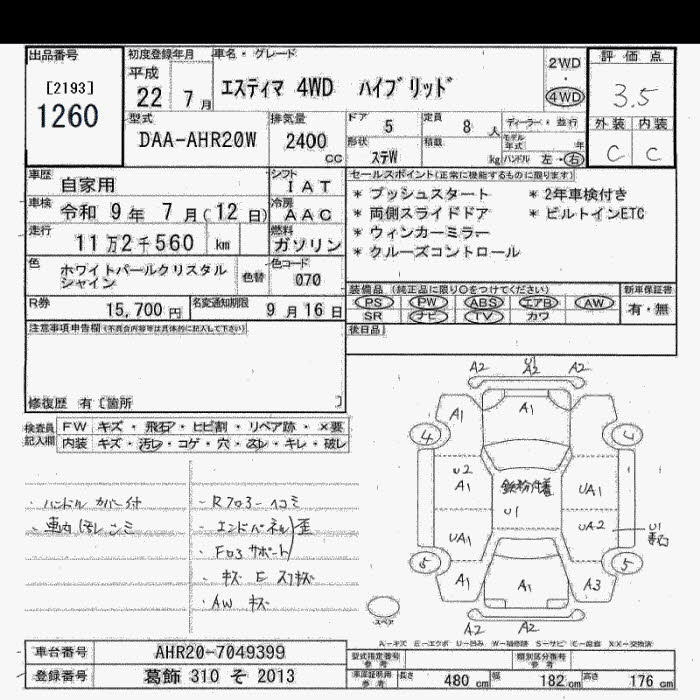 出品番号
[2193]
1260
初度登録年月
平成
22 7 月
車名・グレード
エスティマ 4WD ハイブリッド
2WD
・
4WD
評価点
3.5
外装 内装
C C
型式
DAA-AHR20W
排気量
2400
cc
ドア
5
定員
8 人
形状
ステW
積載
kg
ディーラー・並行
モデル年式 年
ハンドル 左・右
車歴
自家用
シフト
IAT
車検
令和 9 年 7 月(12 日)
冷房
AAC
走行
11 万 2 千 560 km
燃料
ガソリン
色
ホワイトパールクリスタル
シャイン
色替
色コード
070
R券
15,700 円
名変通知期限
9 月 16 日
セールスポイント(正常に機能するものに限ります)
* プッシュスタート * 2年車検付き
* 両側スライドドア * ビルトインETC
* ウィンカーミラー
* クルーズコントロール
装備品 (純正品に限り○をつけてください)
PS PW ABS エアB AW
SR ナビ TV カワ
新車保証書
有・無
後日品
注意事項申告欄(不具合内容等は具体的に記入して下さい)
修復歴 有〔箇所 〕
検査員
記入欄
FW キズ・飛石・ヒビ割・リペア跡・×要
内装 キズ・汚レ・コゲ・穴・ヌレ・キレ・破レ
・ハンドル カバー付
・車内 汚レ シミ
・Rフロアー ヘコミ
・エンドパネル 歪
・Fロアサポート
・キズ E スリキズ
・AW キズ
A2 U1 A2 A2
A1 A1
4 4
U2
A1 鉄粉付着 UA1
U1
UA1 UA2 U1
5 5
A1 A1 A3
A2 A2
スペア
A-キズ E-エクボ U-凹み W-補修跡 S-サビ C-腐食 XX-交換済
車台番号
AHR20-7049399
登録番号
葛飾 310 そ 2013
型式指定番号
参考
類別区分番号
参考
車庫証明用
参考
長さ 480 cm 幅 182 cm 高さ 176 cm